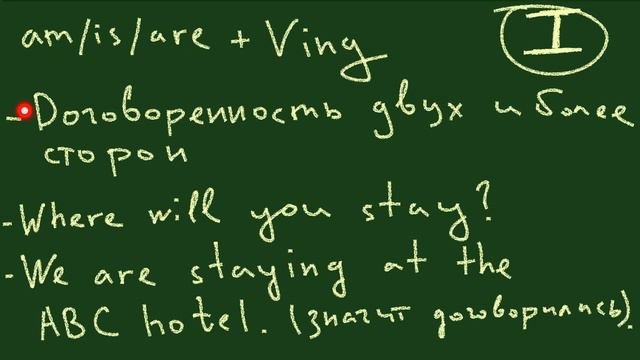 am/is/are + Ving
I
- Договоренность двух и более
сторон
- Where will you stay?
- We are staying at the
ABC hotel. (значит договорились).